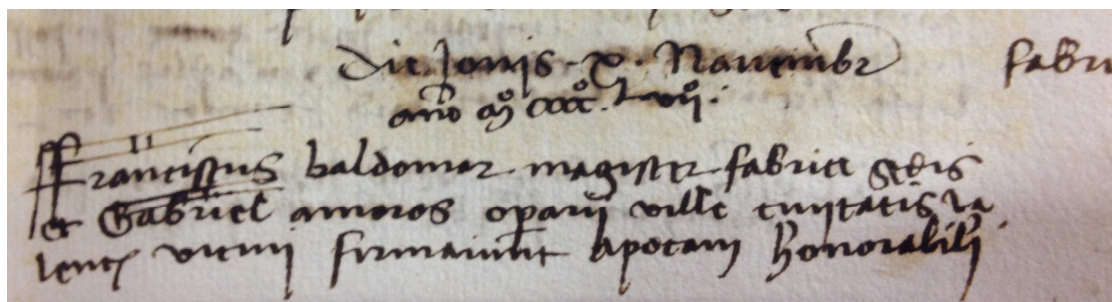 die Jovis x Novembr fabri
año mº cccc lvii
Franciscus baldomar magister fabrice sedis
et Gabriel amoros operarii ville civitatis va
lencie vicini firmarunt apocam honorabili